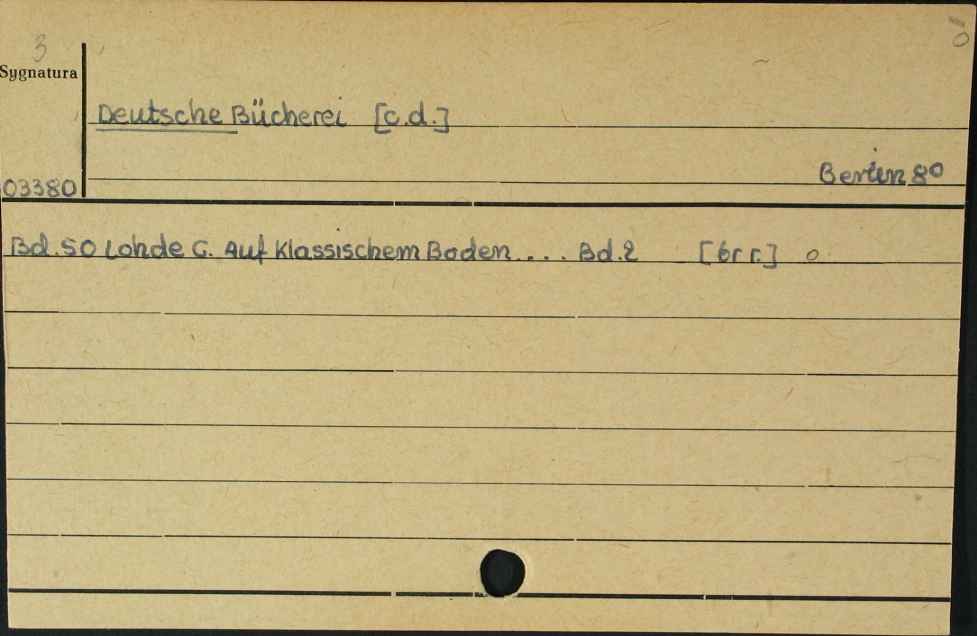 3
Sygnatura
Deutsche Bücherei [c.d.]
Berlin 8°
03380
Bd. 50 Lohde C. Auf Klassischem Boden.... Bd. 2 [br r.] o